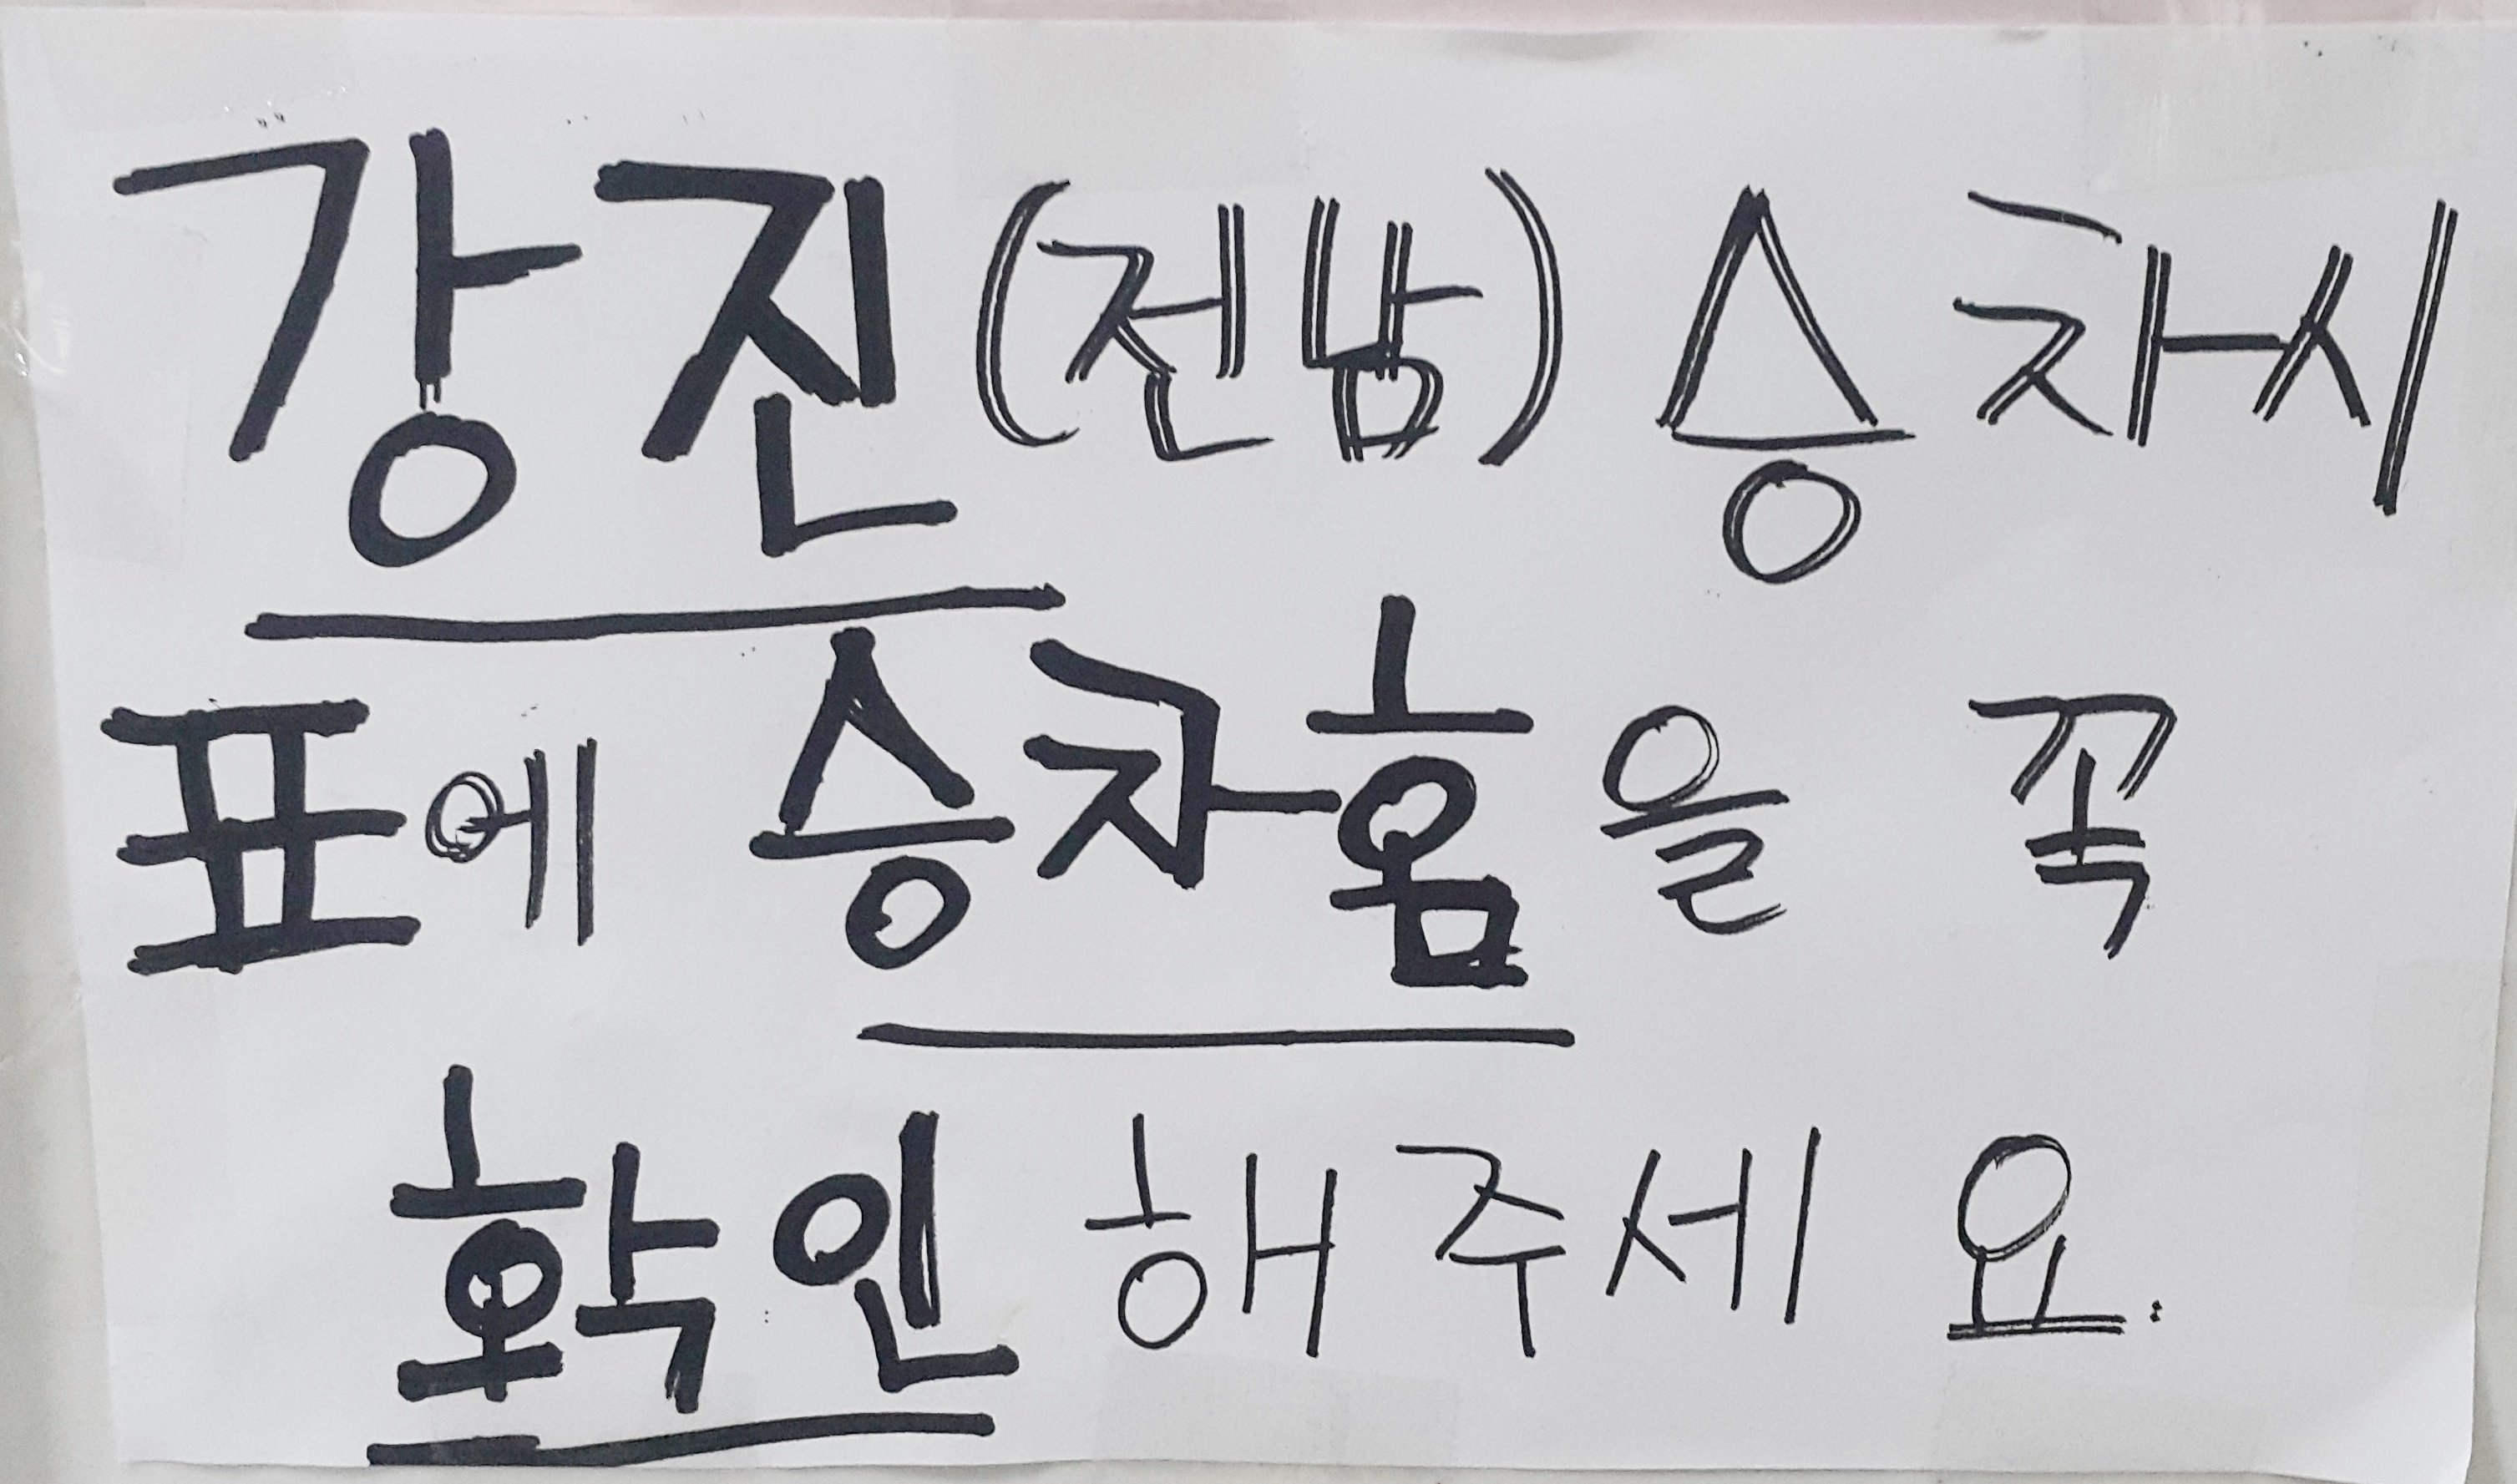 강진(전남) 승차시
표에 승차홈을 꼭
확인해주세요.